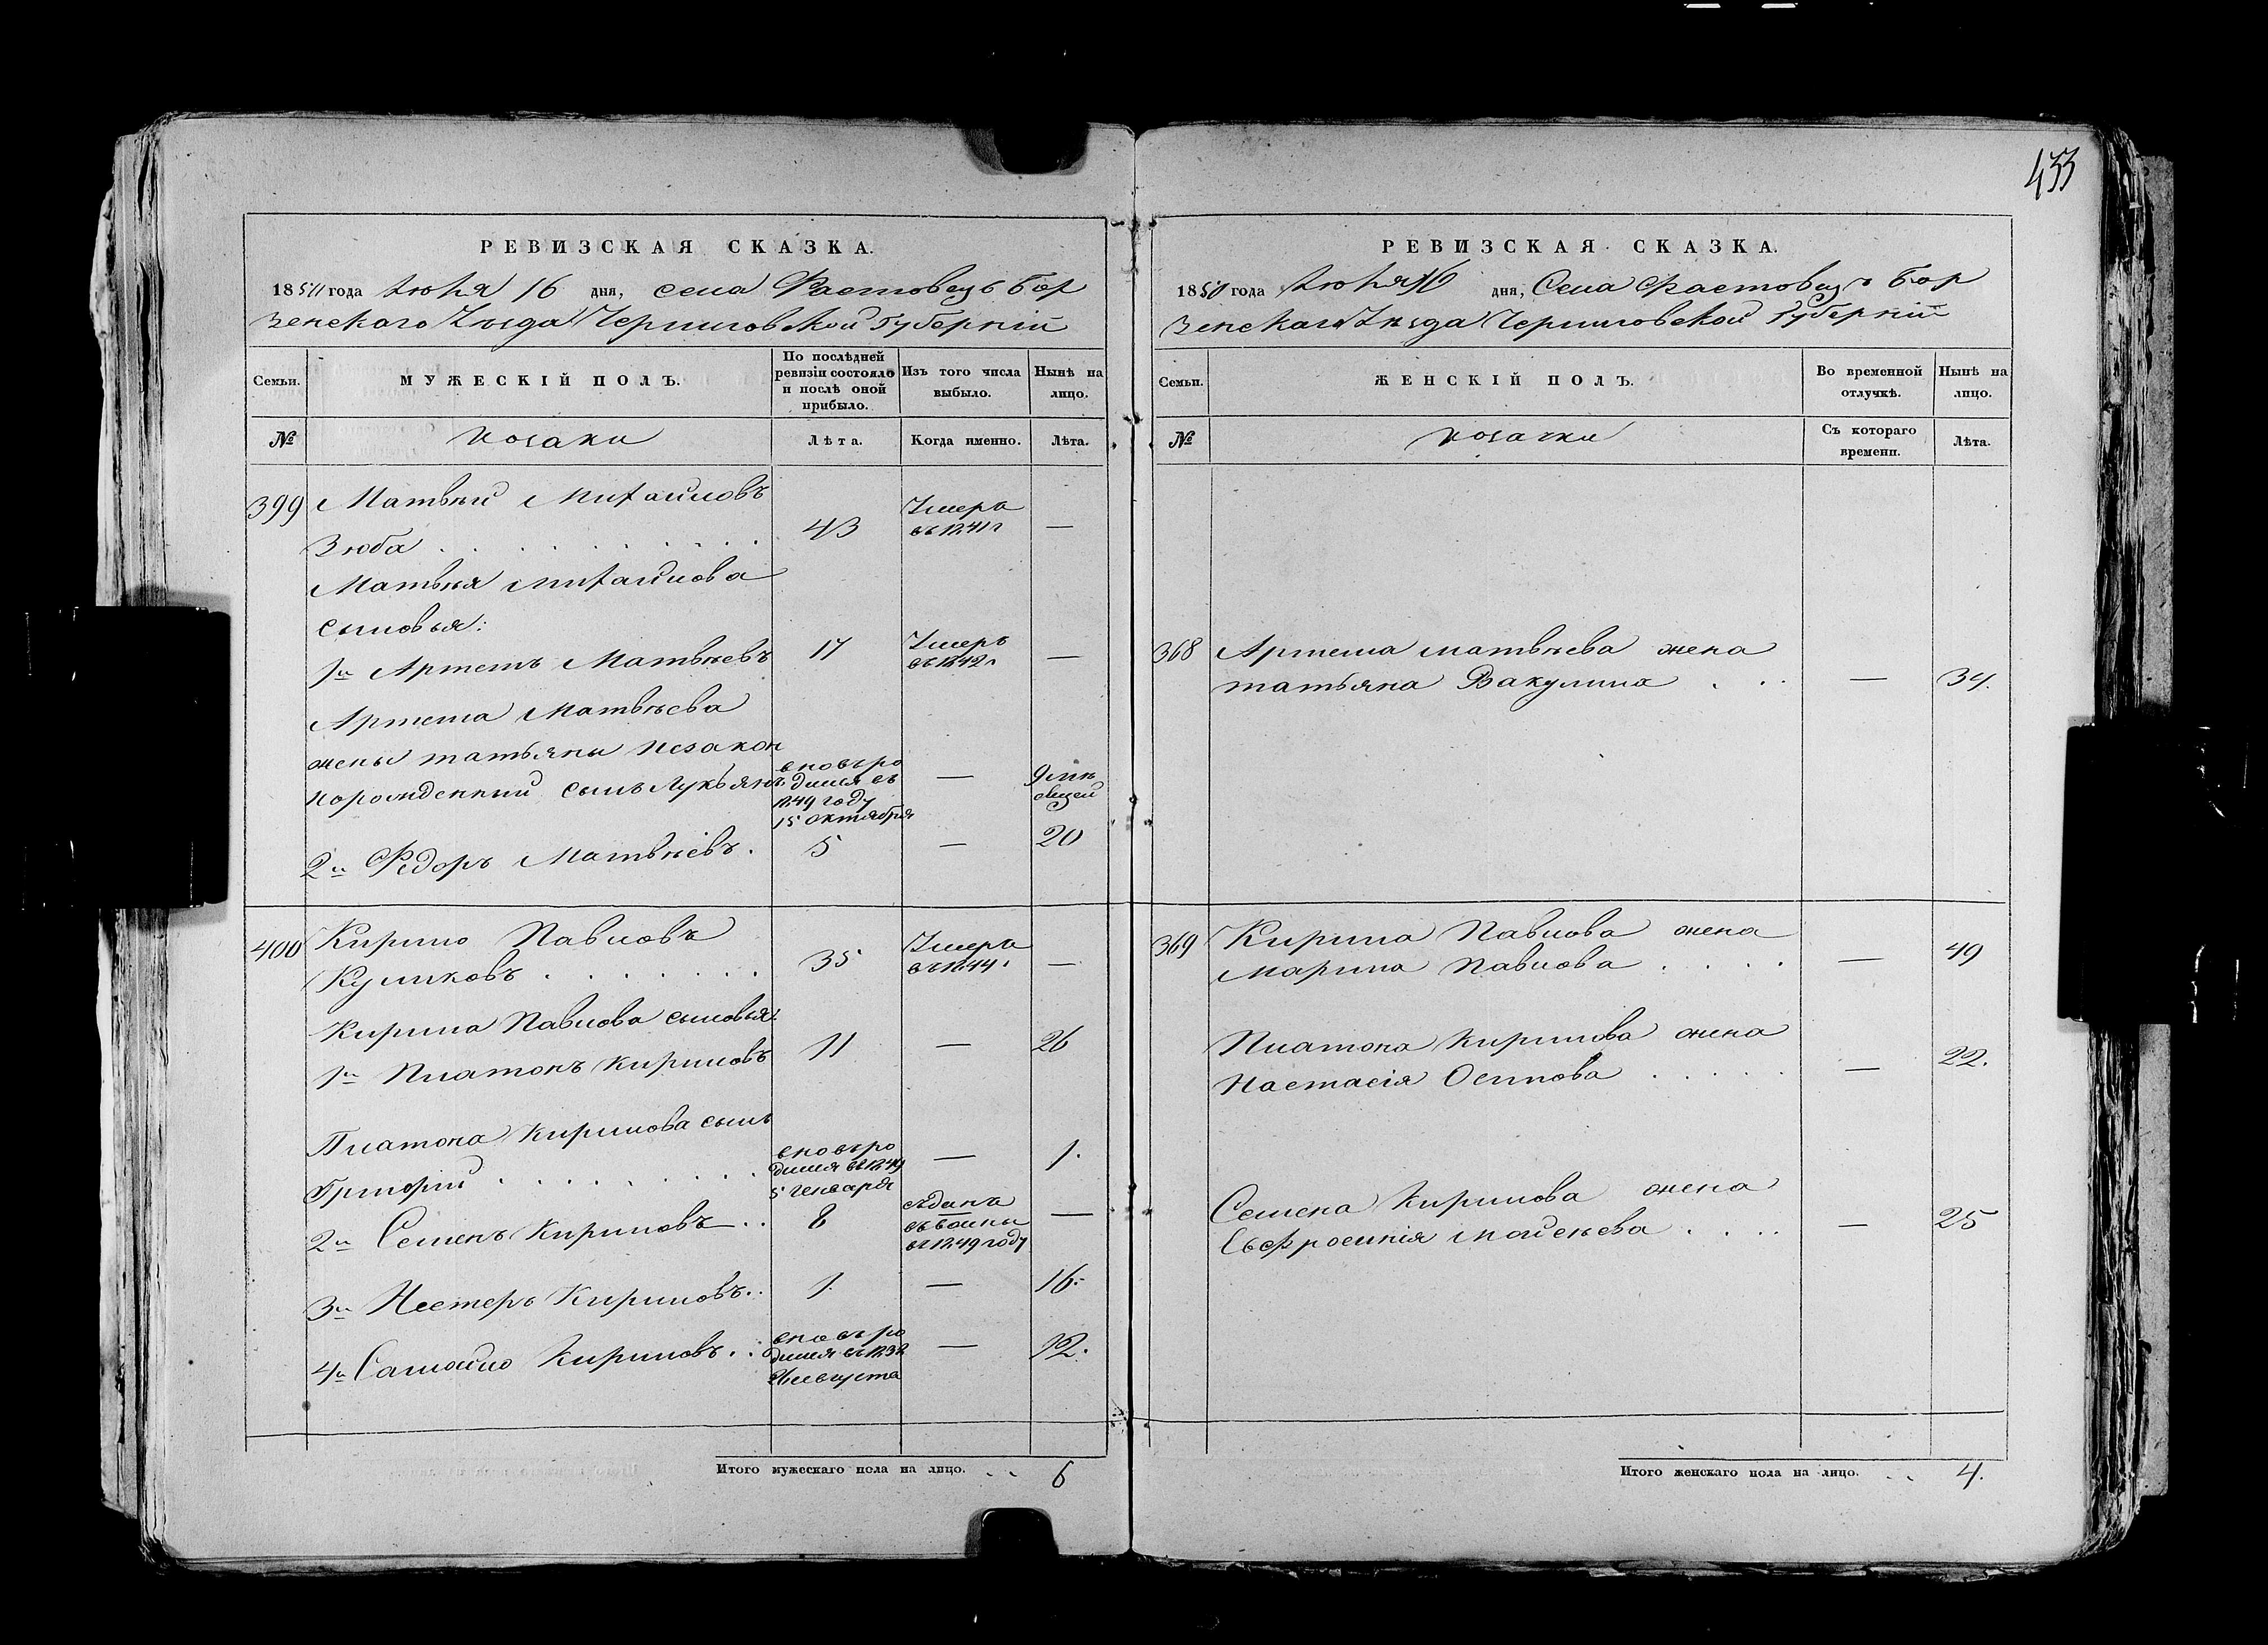 433
РЕВИЗСКАЯ СКАЗКА.
1850 года Июня 16 дня, села Фастовецъ Бор
зенскаго Уезда Черниговской Губерніи
Семьи.
МУЖЕСКІЙ ПОЛЪ.
По послѣдней ревизіи состояло и послѣ оной прибыло.
Изъ того числа выбыло.
Нынѣ на лицо.
№
козаки
Лѣта.
Когда именно.
Лѣта.
399 Матвѣй Михайловъ
Зюба 43 Умеръ въ 1841 г —
Матвѣя Михайлова
сыновья:
1й Артемъ Матвѣевъ 17 Умеръ въ 1842 г —
Артема Матвѣева
жены татьяны незакон
норожденный сынъ Лукьянъ вновь ро
дился въ
1849 году
15 октября — 9 мѣ
сяцей
2й Федоръ Матвѣевъ. 5 — 20
400 Кирило Павловъ
Куликовъ 35 Умеръ въ 1844 г —
Кирила Павлова сыновья:
1й Платонъ Кириловъ 11 — 26
Платона Кирилова сынъ
Григорій вновь ро
дился въ 1849
5 генваря — 1.
2й Семенъ Кириловъ 8 отданъ
въ воины
въ 1849 году —
3й Нестеръ Кириловъ 1. — 16.
4й Самойло Кириловъ вновь ро
дился въ 1838
августа — 12.
Итого мужескаго пола на лицо. 6
РЕВИЗСКАЯ СКАЗКА.
1850 года Июня 16 дня, Села Фастовецъ Бор
зенскаго Уезда Черниговской Губерніи
Семьи.
ЖЕНСКІЙ ПОЛЪ.
Во временной отлучкѣ.
Нынѣ на лицо.
№
козачки
Съ котораго времени.
Лѣта.
368 Артема матвѣева жена
татьяна Вакулина — 34.
369 Кирила Павлова жена
Марина Павлова — 49
Платона Кирилова жена
Настасія Осипова — 22.
Семена Кирилова жена
Евфросинія Моисѣева — 25
Итого женскаго пола на лицо. 4.